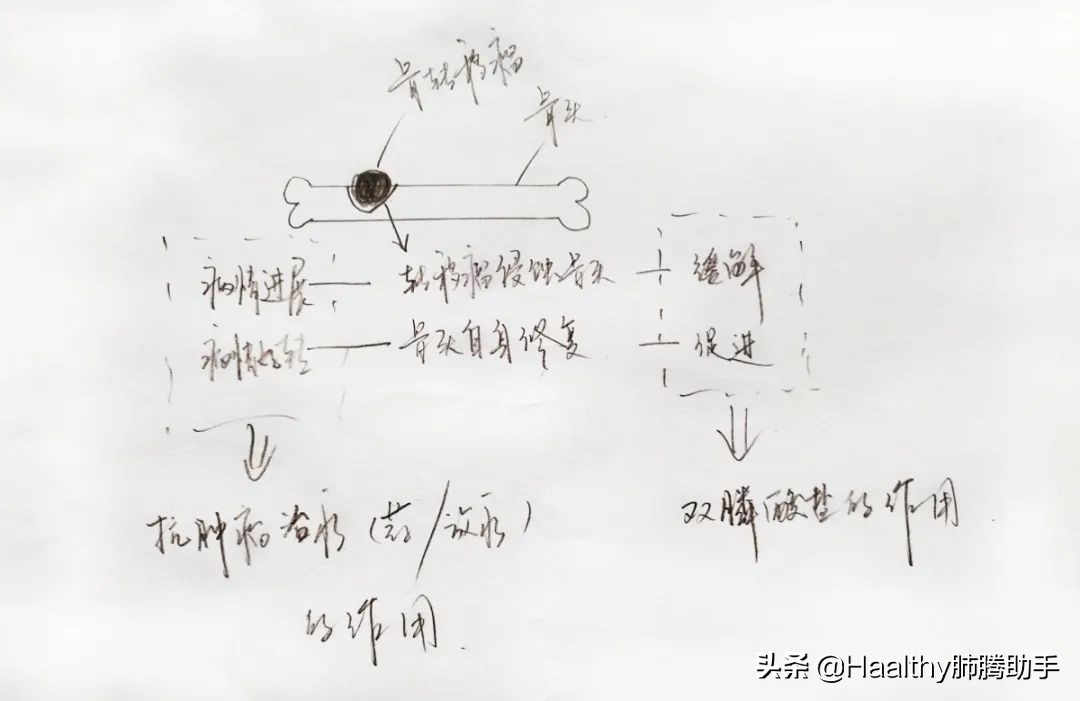 骨转移瘤
骨头
病情进展 转移瘤侵蚀骨头 缓解
病情好转 骨头自身修复 促进
抗肿瘤治疗(药/放疗)
的作用
双膦酸盐的作用
头条 @Haalthy肺腾助手